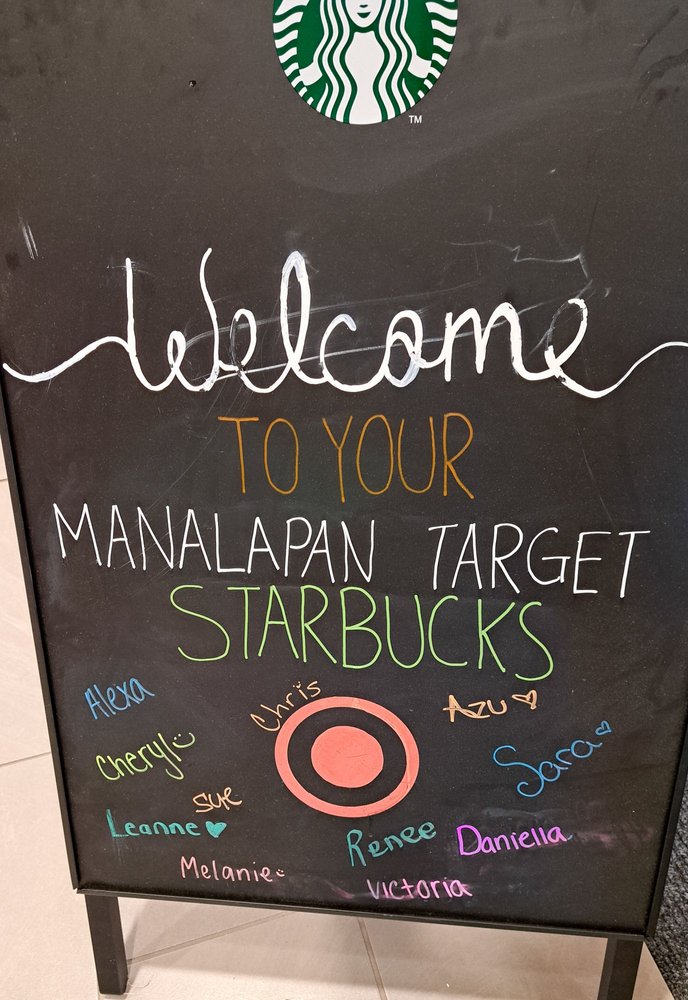 TM
Welcome
TO YOUR
MANALAPAN TARGET
STARBUCKS
Alexa
Chris
Azu
Cheryl
Sara
Sue
Leanne
Renee
Daniella
Melanie
Victoria